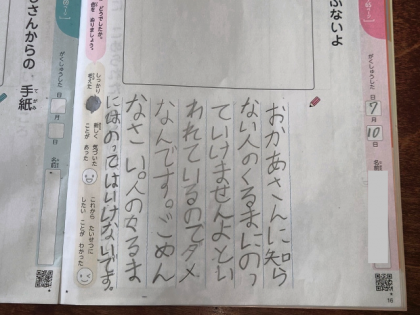 ぶないよ
がくしゅうした
日
7
月
10
日
名前
おかあさんに知ら
ない人のくるまにのっ
ていけませんよとい
われているのでダメ
なんです。ごめん
なさい。人のくるま
にはのってはいけないです。
どうでしたか。
ぬりましょう。
しっかり
考えた
新しく 気づいた
ことが あった
これから たいせつに
したい ことが わかった
がくしゅうした
月
日
名前
さんからの 手紙
てがみ
16